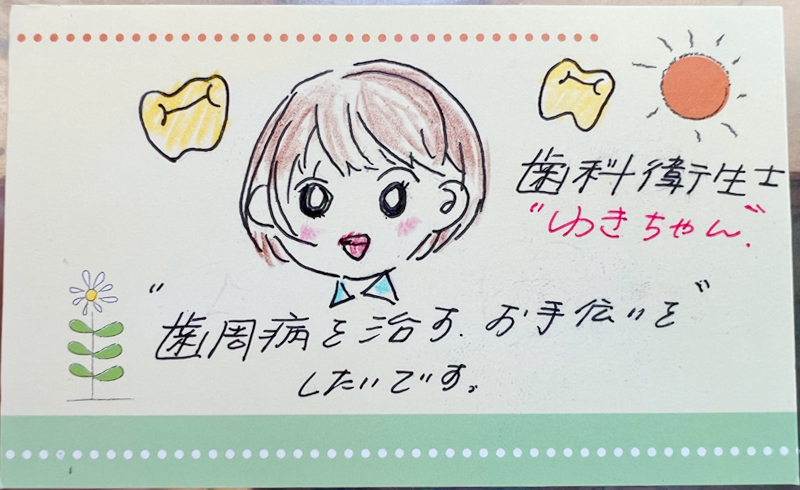 歯科衛生士
"ゆきちゃん".
"歯周病を治す.お手伝いを"
したいです。